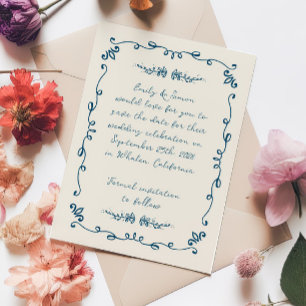 Emily & Simon
would love for you to
save the date for their
wedding celebration on
September 25th 2026
in Whalan, California
Formal invitation
to follow